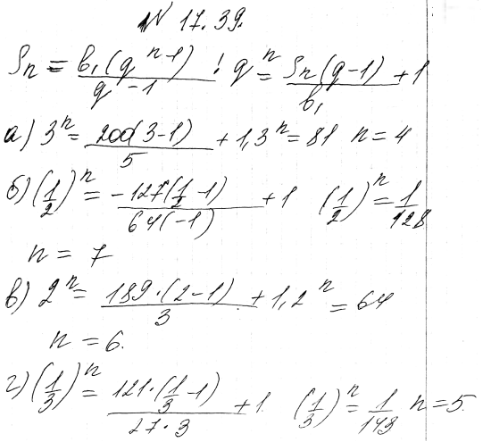 № 17.39.
Sn = b₁(q^n-1)/(q-1) ! q^n = Sn(q-1)/b₁ + 1
а) 3^n = 200(3-1)/5 + 1, 3^n = 81 n = 4
б) (1/2)^n = -127(1/2 -1)/64(-1) + 1 (1/2)^n = 1/128
n = 7
в) 2^n = 189·(2-1)/3 + 1, 2^n = 64
n = 6.
г) (1/3)^n = 121·(1/3 -1)/27·3 + 1 (1/3)^n = 1/143 n = 5.